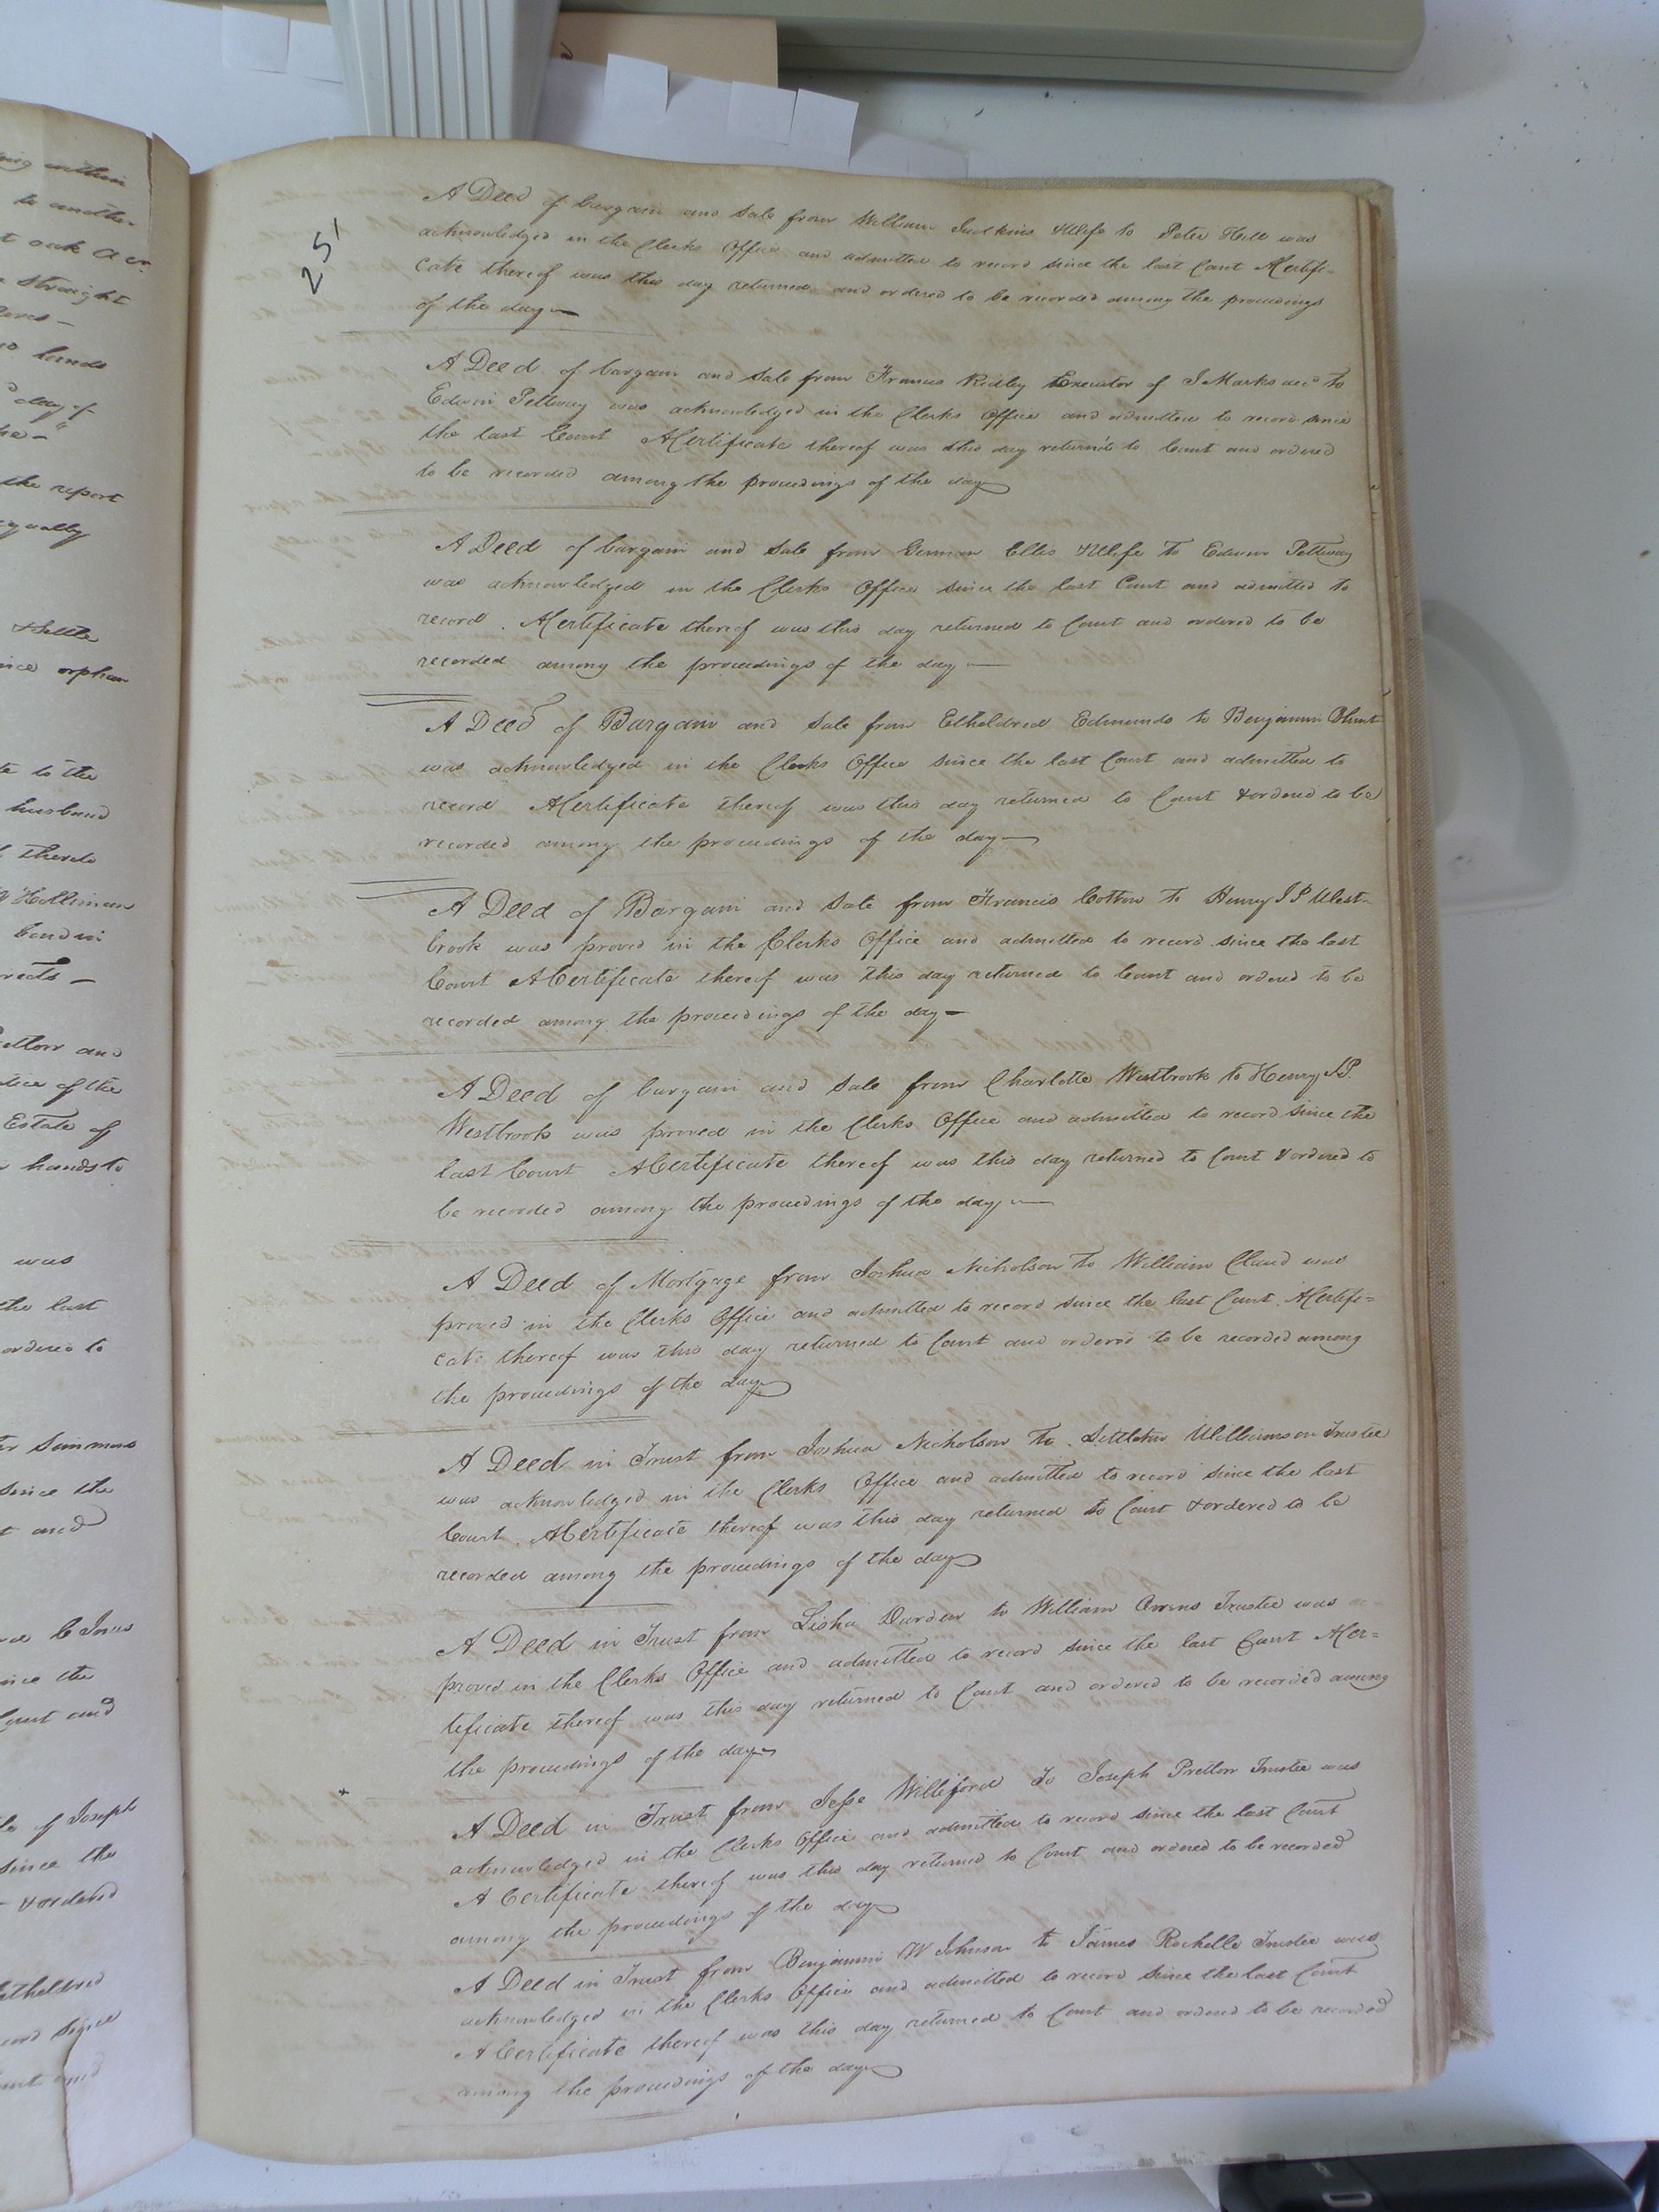 ing within
to anothe-
t oak a cr
straight
lands
day of
the report
equally
& Settle
orphan
to the
husband
thereto
Holliman
bond in
rects -
and
of the
Estate of
hands to
was
the last
ordered to
Simmons
since the
and
C Jones
since the
Court and
of Joseph
since the
& ordered
Etheldred
since
and
251
A Deed of bargain and Sale from William Judkins & Wife to Peter Hill was
acknowledged in the Clerks Office and admitted to record since the last Court A Certifi=
cate thereof was this day returned and ordered to be recorded among the proceedings
of the day —
A Deed of bargain and Sale from Francis Ridley Executor of J Marks decd to
Edwin Pettway was acknowledged in the Clerks Office and admitted to record since
the last Court A Certificate thereof was this day returned to Court and ordered
to be recorded among the proceedings of the day
A Deed of bargain and Sale from German Ellis & Wife to Edwin Pettway
was acknowledged in the Clerks Office since the last Court and admitted to
record. A Certificate thereof was this day returned to Court and ordered to be
recorded among the proceedings of the day —
A Deed of Bargain and Sale from Etheldred Edmunds to Benjamin Blunt
was acknowledged in the Clerks Office since the last Court and admitted to
record A Certificate thereof was this day returned to Court & ordered to be
recorded among the proceedings of the day —
A Deed of Bargain and Sale from Francis Cotton to Henry J P West-
brook was proved in the Clerks Office and admitted to record since the last
Court A Certificate thereof was this day returned to Court and ordered to be
recorded among the proceedings of the day —
A Deed of bargain and Sale from Charlotte Westbrook to Henry J P.
Westbrook was proved in the Clerks Office and admitted to record since the
last Court A Certificate thereof was this day returned to Court & ordered to
be recorded among the proceedings of the day —
A Deed of Mortgage from Joshua Nicholson to William Claud was
proved in the Clerks Office and admitted to record since the last Court. A Certifi=
cate thereof was this day returned to Court and ordered to be recorded among
the proceedings of the day
A Deed in Trust from Joshua Nicholson to Littleton Williamson Trustee
was acknowledged in the Clerks Office and admitted to record since the last
Court. A Certificate thereof was this day returned to Court & ordered to be
recorded among the proceedings of the day
A Deed in Trust from Lisha Darden to William Owens Trustee was
proved in the Clerks Office and admitted to record since the last Court A Cer=
tificate thereof was this day returned to Court and ordered to be recorded among
the proceedings of the day
A Deed in Trust from Jesse Williford to Joseph Pretlow Trustee was
acknowledged in the Clerks Office and admitted to record since the last Court
A Certificate thereof was this day returned to Court and ordered to be recorded
among the proceedings of the day
A Deed in Trust from Benjamin W Johnson to James Rochelle Trustee was
acknowledged in the Clerks Office and admitted to record since the last Court
A Certificate thereof was this day returned to Court and ordered to be recorded
among the proceedings of the day